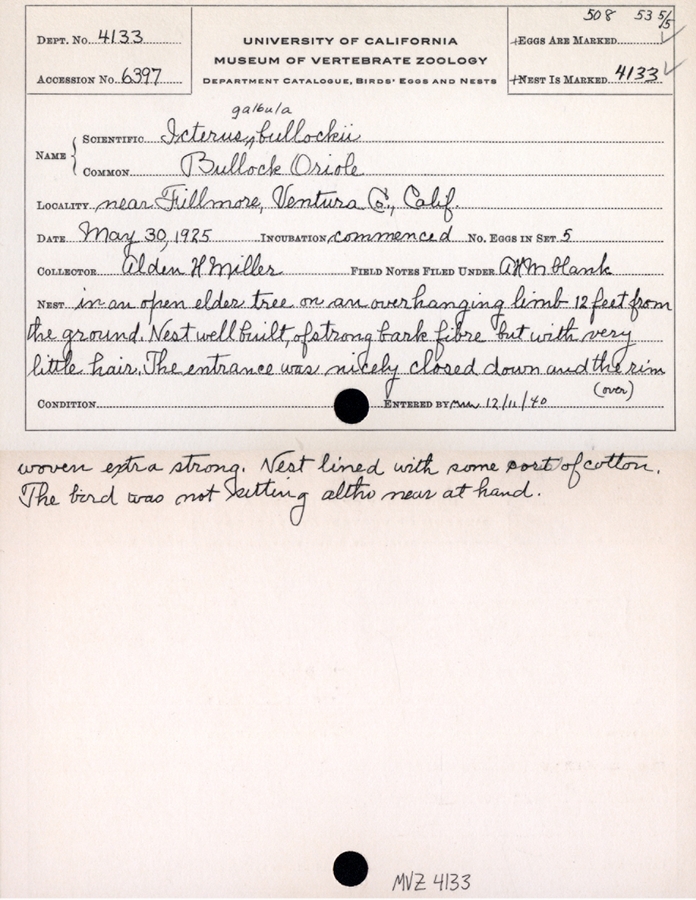 508 53 5/5
DEPT. No. 4133
ACCESSION No. 6397
UNIVERSITY OF CALIFORNIA
MUSEUM OF VERTEBRATE ZOOLOGY
DEPARTMENT CATALOGUE, BIRDS' EGGS AND NESTS
+EGGS ARE MARKED ✓
+NEST IS MARKED 4133 ✓
galbula
NAME { SCIENTIFIC Icterus ‸ bullockii
COMMON Bullock Oriole
LOCALITY near Fillmore, Ventura Co., Calif.
DATE May 30, 1925 INCUBATION commenced No. EGGS IN SET 5
COLLECTOR Alden H Miller FIELD NOTES FILED UNDER AHM blank
NEST in an open elder tree on an overhanging limb 12 feet from
the ground. Nest well built, of strong bark fibre but with very
little hair. The entrance was nicely closed down and the rim
(over)
CONDITION ENTERED BY 12/11/40
woven extra strong. Nest lined with some sort of cotton.
The bird was not sitting altho near at hand.
MVZ 4133